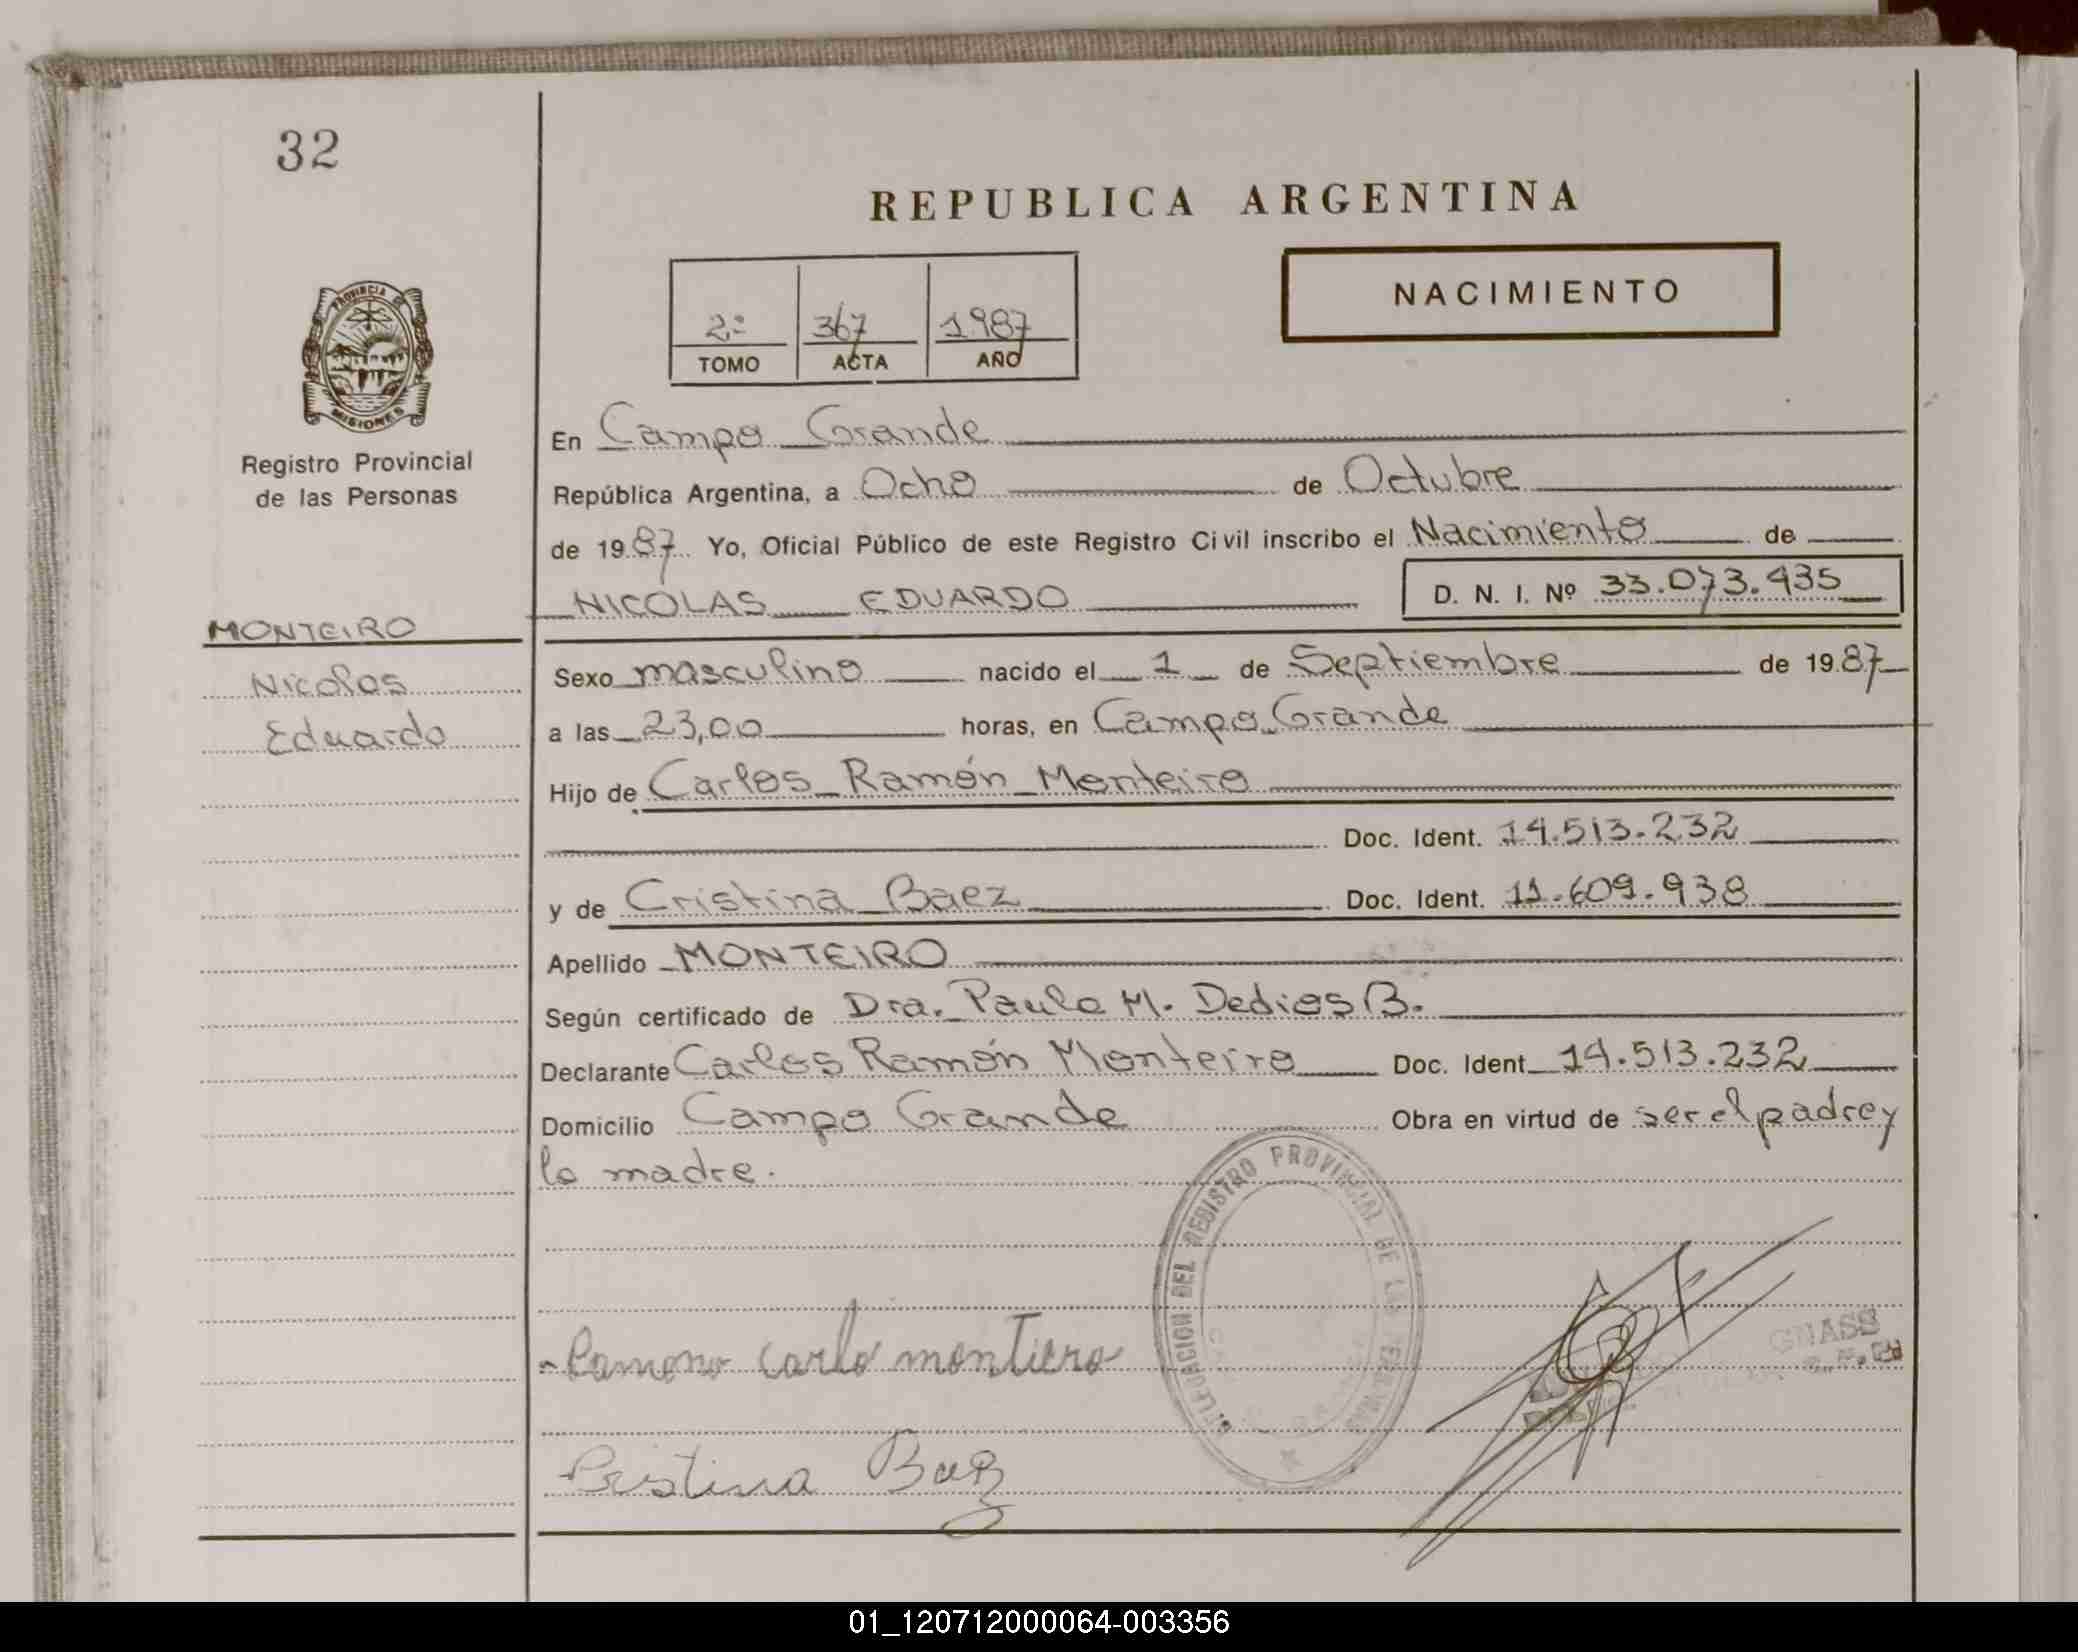 32
REPUBLICA ARGENTINA
NACIMIENTO
2º 367 1987
TOMO ACTA AÑO
PROVINCIA DE
MISIONES
Registro Provincial
de las Personas
En Campo Grande
República Argentina, a Ocho de Octubre
de 1987 Yo, Oficial Público de este Registro Civil inscribo el Nacimiento de
NICOLAS EDUARDO D. N. I. Nº 33.073.435
MONTEIRO
Nicolas
Eduardo
Sexo masculino nacido el 1 de Septiembre de 1987
a las 23,00 horas, en Campo Grande
Hijo de Carlos Ramón Monteiro
Doc. Ident. 14.513.232
y de Cristina Baez Doc. Ident. 11.609.938
Apellido MONTEIRO
Según certificado de Dra. Paula M. Dedios B.
Declarante Carlos Ramón Monteiro Doc. Ident 14.513.232
Domicilio Campo Grande Obra en virtud de ser el padre y
la madre.
DELEGACION DEL REGISTRO PROVINCIAL DE LAS PERSONAS
Ramono carlo montiero
GNASS
Cristina Baez
01_120712000064-003356